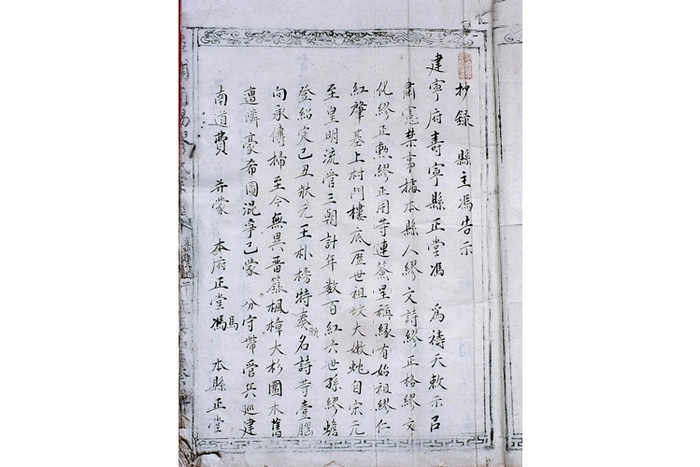 抄錄 縣主馮告示
建寧府壽寧縣正堂馮 為禱天敕示㠯
肅憲禁事據本縣人繆文詩繆正格繆文
化繆正勲繆正用芋連簽呈稱緣有始祖繆仁
紅肇基上村門樓底歷世祖坟大嫩蛇自宋元
至皇明流管三朝計年數百紅六世孫繆蟾
登紹定己丑狀元王朴榜特奏名詩芋壹脈
向承傳掃至今無異畨籙楓樟大杉圍木舊
遭隣豪希圖混爭已蒙 分守帶管兵廵建
南道費 并蒙 本府正堂馮 本縣正堂